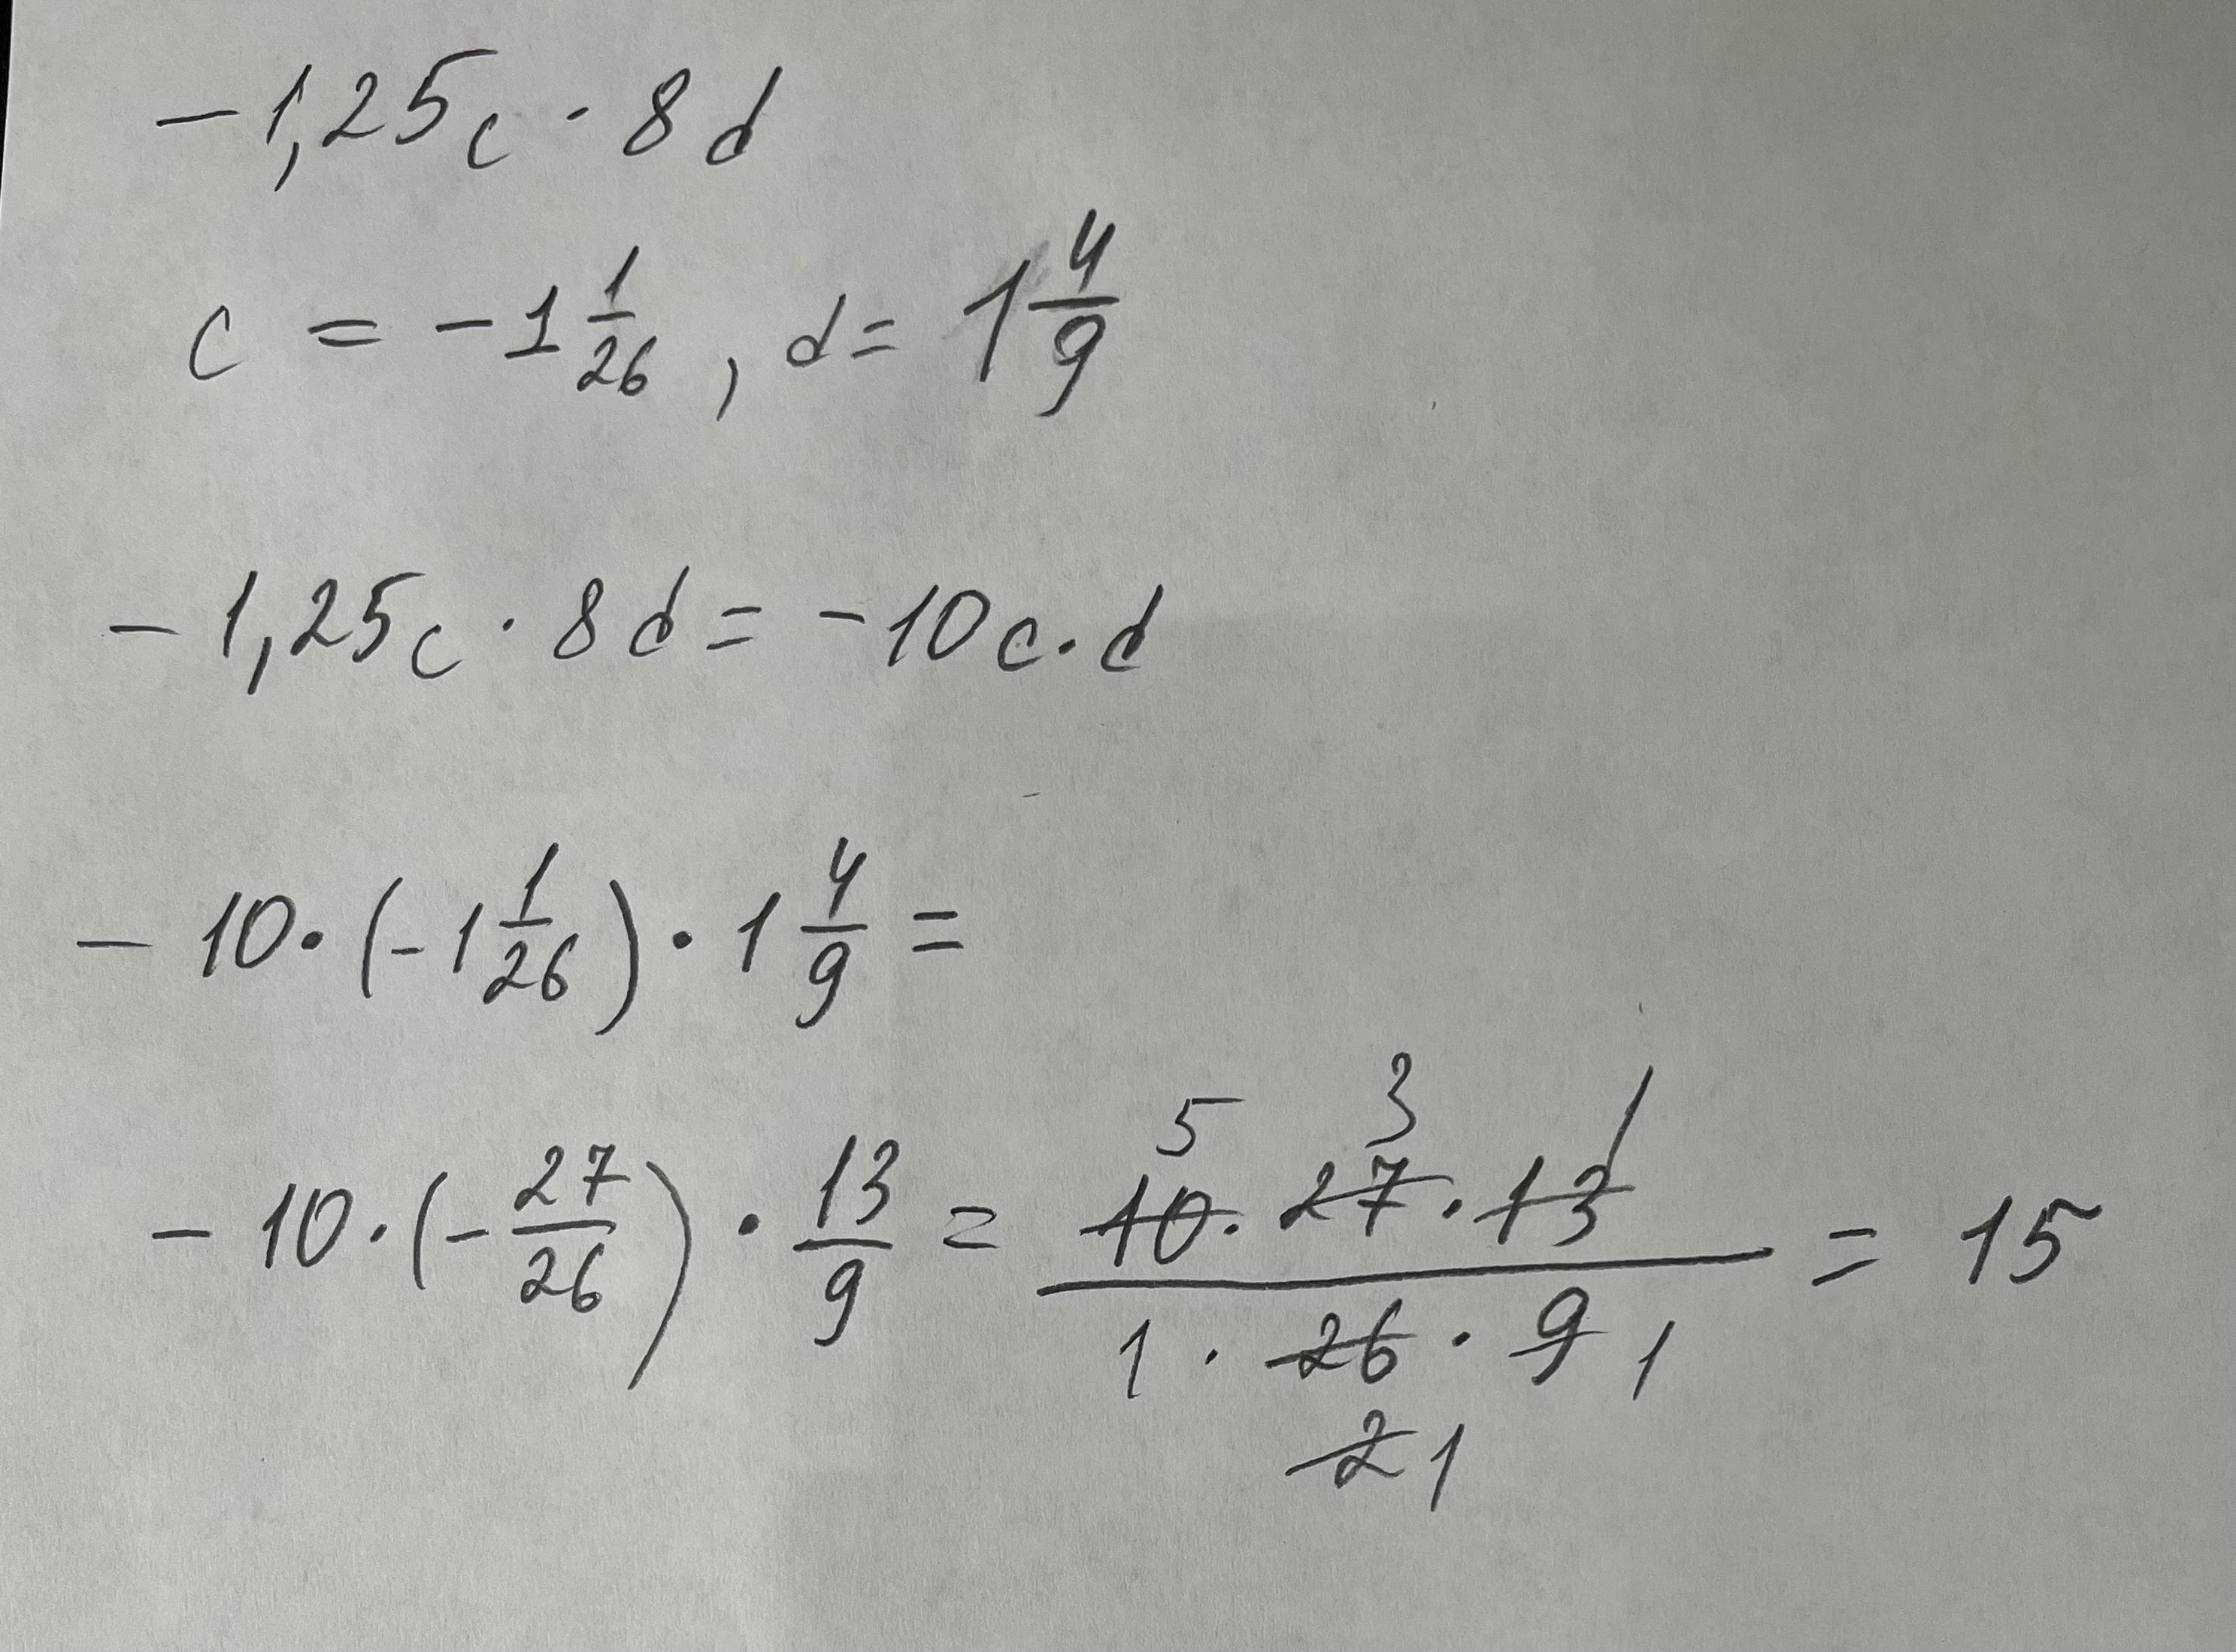 -1,25c · 8d
c = -1 1/26, d = 1 4/9
-1,25c · 8d = -10c·d
-10·(-1 1/26)·1 4/9 =
5 3 1
-10·(-27/26)·13/9 = 10·27·13/1·26·9 1 = 15
2 1